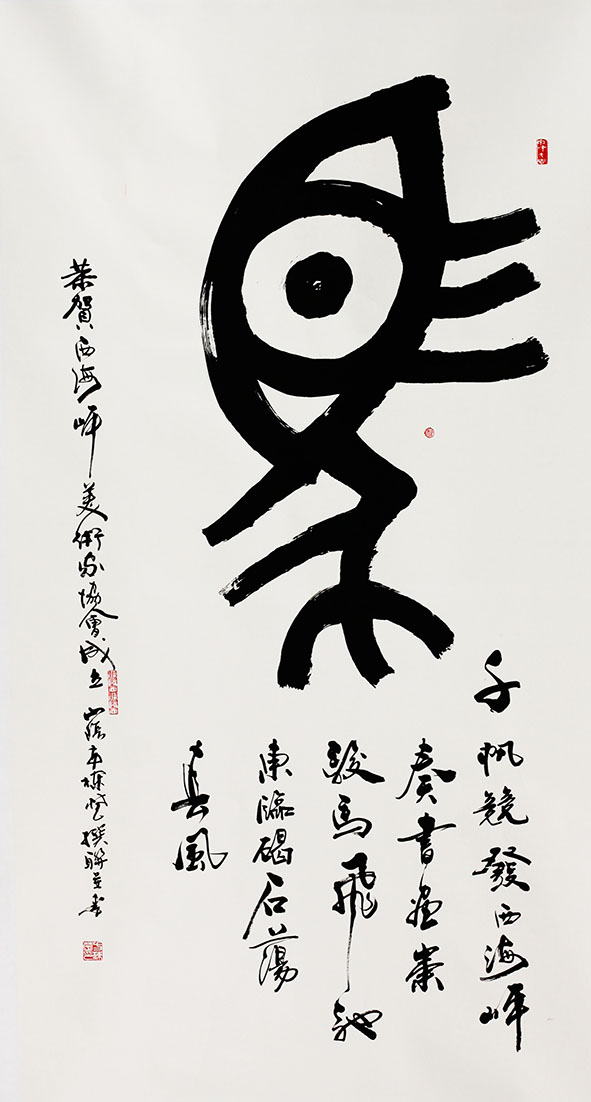 馬
千帆競發西海岸
奏書畫
駿馬飛馳
東臨碣石蕩
風
恭賀西海岸美術家協會成立 撰聯並書